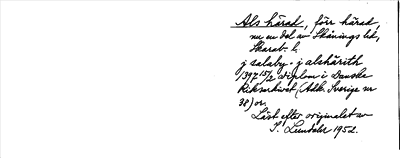 Als härad, förr härad,
nu en del av Skånings hd,
Skarab. l.
j salaby. j alshärith
1397 15/2 diplom i Danska
Riksarkivet (Adk. Sverige nr
38) or.
Läst efter originalet av
I. Lundahl 1952.